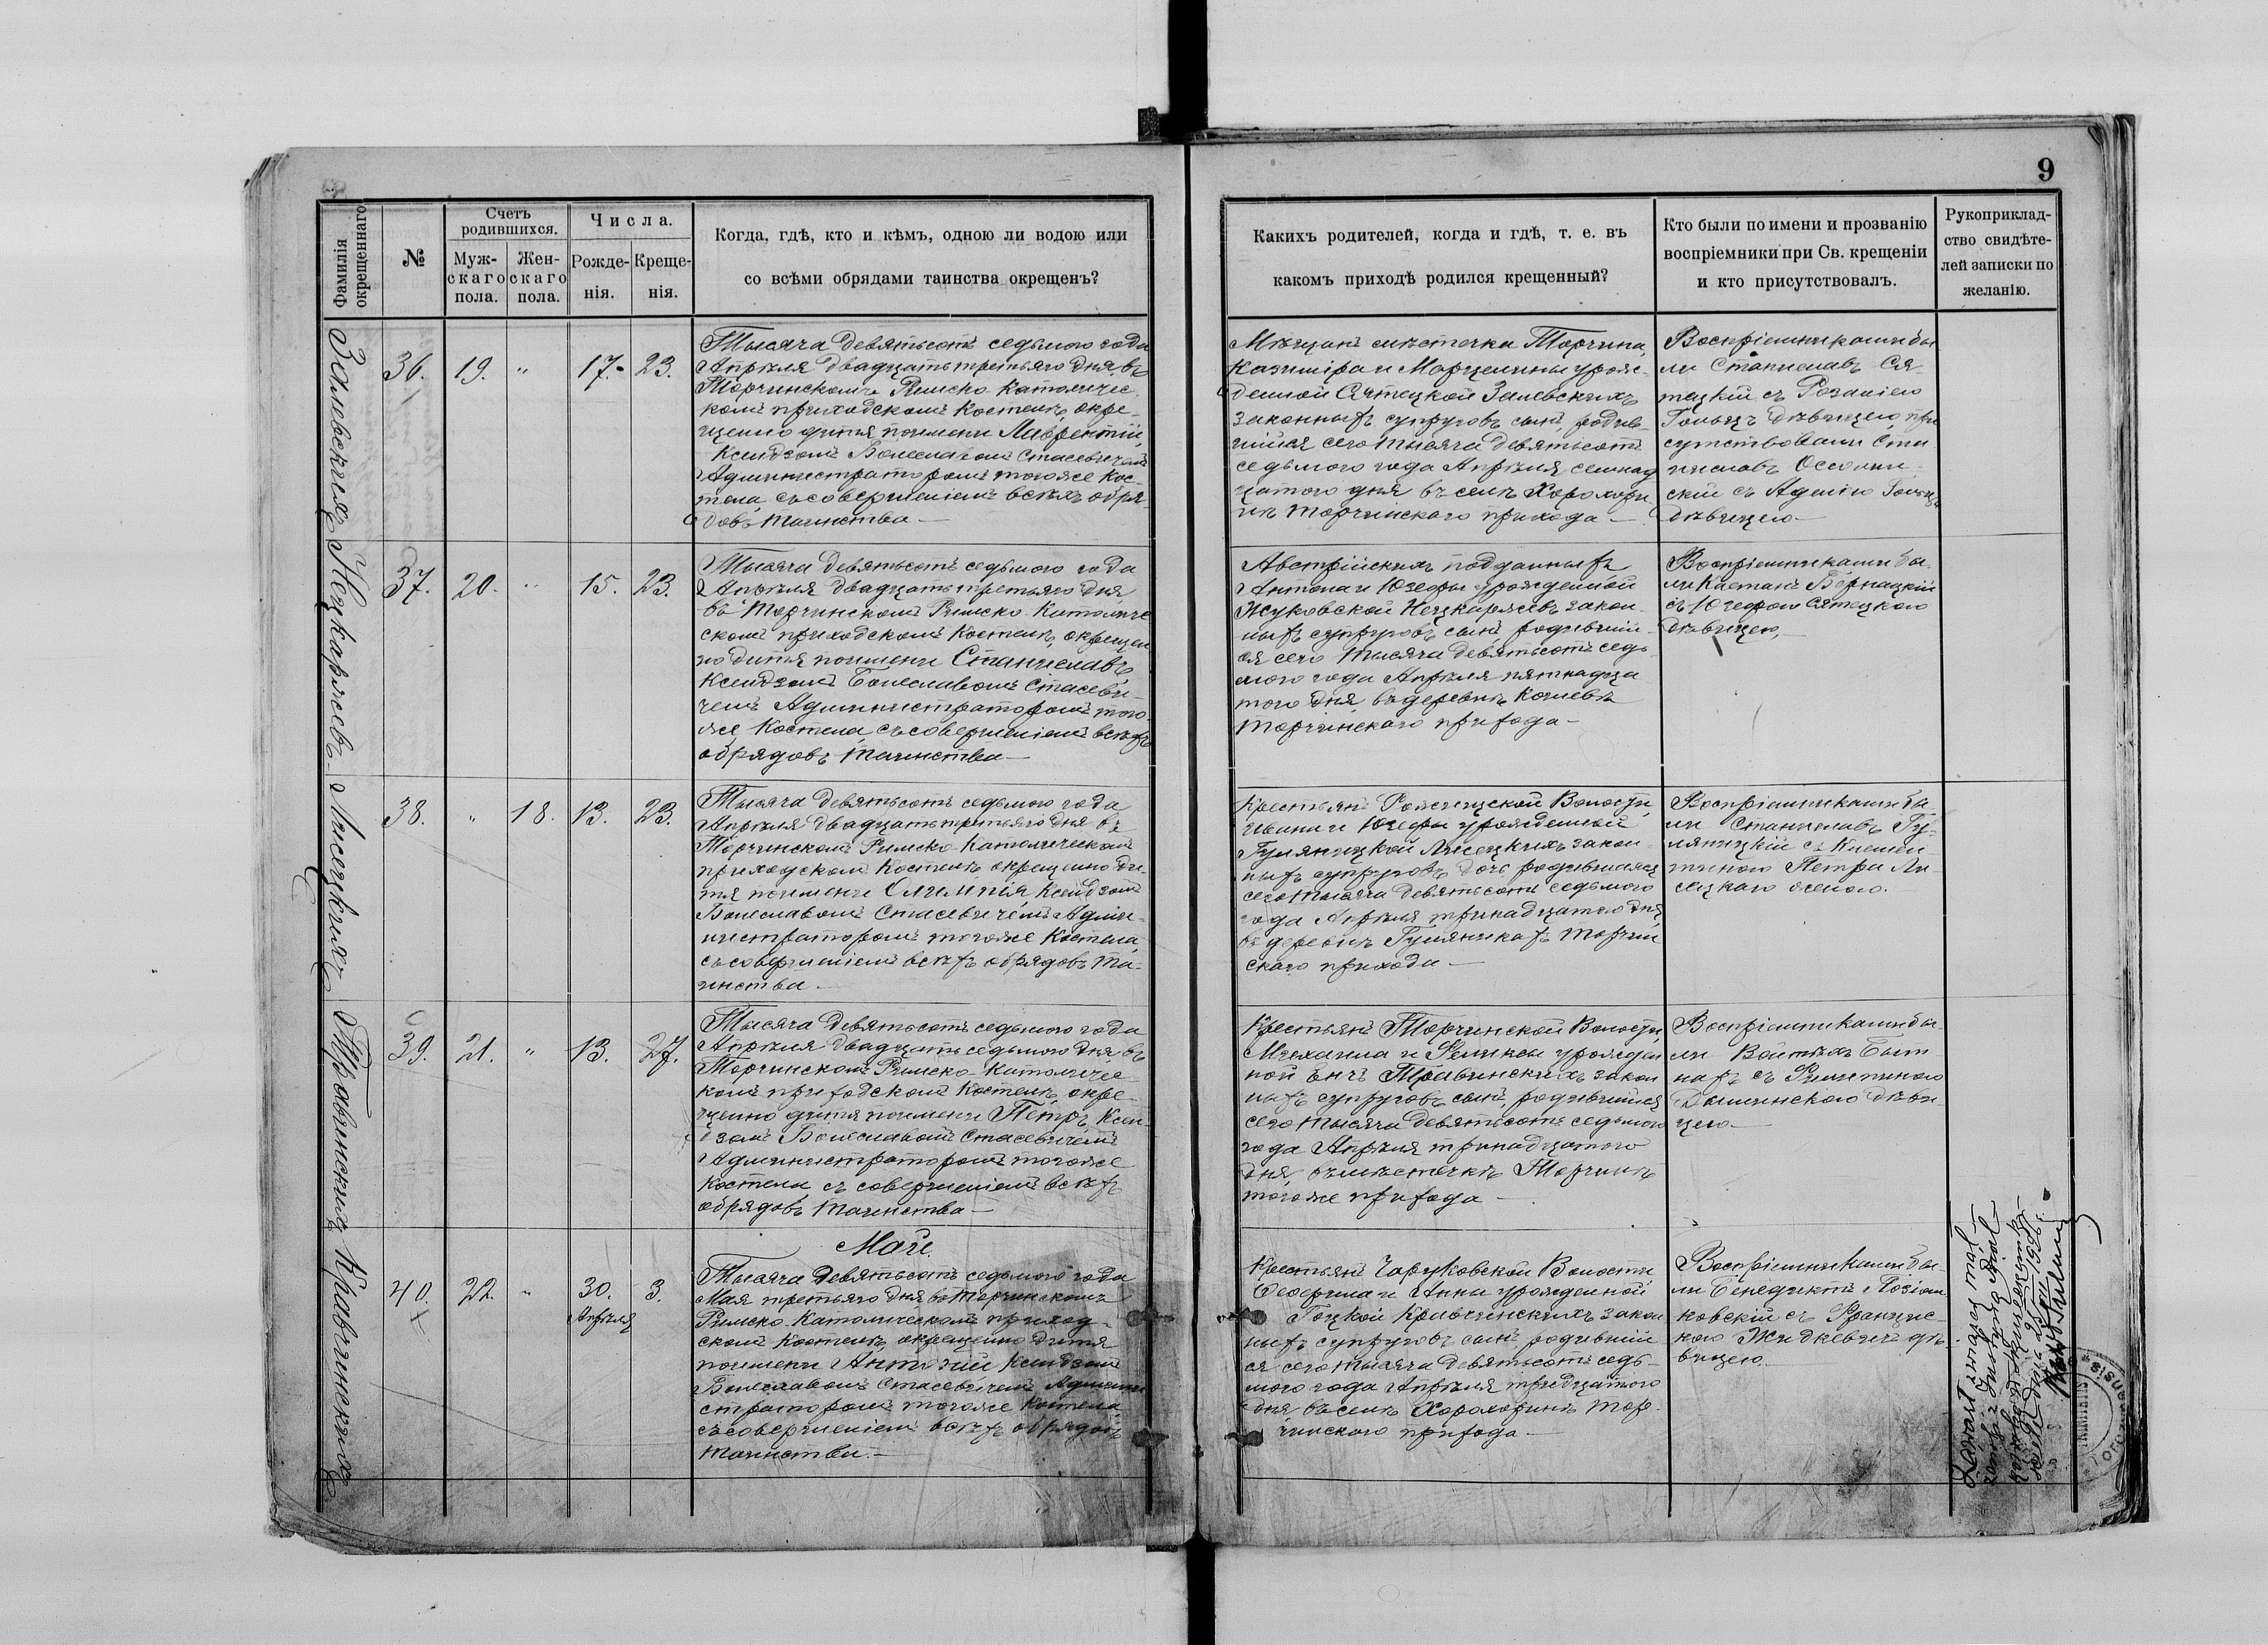 9
Фамилія окрещеннаго
№
Счетъ родившихся.
Муж-
скаго
пола.
Жен-
скаго
пола.
Числа.
Рожде-
нія.
Креще-
нія.
Когда, гдѣ, кто и кѣмъ, одною ли водою или
со всѣми обрядами таинства окрещенъ?
Какихъ родителей, когда и гдѣ, т. е. въ
какомъ приходѣ родился крещенный?
Кто были по имени и прозванію
воспріемники при Св. крещеніи
и кто присутствовалъ.
Рукоприклад-
ство свидѣте-
лей записки по
желанію.
Залевскихъ
36. 19. " 17. 23.
Тысяча девятьсотъ седьмого года
Апрѣля двадцать третьяго дня, въ
Торчинскомъ Римско Католичес-
комъ приходскомъ Костелѣ окре-
щено дитя поимени Лаврентій,
Ксендзомъ Болеславомъ Стасевичемъ
Администраторомъ тогоже Кос-
тела, съ совершеніемъ всѣхъ обря-
довъ таинства —
Мѣщанъ мѣстечка Торчина,
Казиміра и Марцелины урож-
денной Сятецкой Залевскихъ
законныхъ супруговъ сынъ, родив-
шійся сего тысяча девятьсотъ
седьмого года Апрѣля семнад
цатого дня въ селѣ Хорохори
нѣ Торчинскаго прихода —
Воспріемниками бы
ли Станиславъ Ся
тецкій съ Розаліею
дѣвицею, при
сутствовали Ста
ниславъ
скій съ
дѣвицею —
Нецкаржевъ
37. 20. " 15. 23.
Тысяча девятьсотъ седьмого года
Апрѣля двадцать третьяго дня
въ Торчинскомъ Римско-Католиче
скомъ приходскомъ Костелѣ, окрещен
но дитя поимени Станиславъ,
Ксендзомъ Болеславомъ Стасеви-
чемъ Администраторомъ того-
же Костела, съ совершеніемъ всѣхъ
обрядовъ таинства —
Австрійскихъ подданныхъ
Антона и Юзефы урожденной
Жуковской Нецкаржевъ закон-
ныхъ супруговъ сынъ, родившій-
ся сего тысяча девятьсотъ седь
мого года Апрѣля пятнадца
того дня, въ деревнѣ
Торчинскаго прихода —
Воспріемниками бы-
ли Каетанъ Бернацкій
съ Юзефою Сятецкою
дѣвицею, —
Лисецкихъ
38. " 18. 13. 23.
Тысяча девятьсотъ седьмого года
Апрѣля двадцать третьяго дня въ
Торчинскомъ Римско-Католическомъ
приходскомъ Костелѣ окрещено ди-
тя поимени Олимпія, Ксендзомъ
Болеславомъ Стасевичемъ Адми-
нистраторомъ тогоже Костела,
съ совершеніемъ всѣхъ обрядовъ та-
инства —
Крестьянъ Рожищской Волости,
Ивана и Юзефы урожденной
Гуляницкой Лисецкихъ закон-
ныхъ супруговъ дочь родившаяся
сего тысяча девятьсотъ седьмого
года Апрѣля тринадцатого дня,
въ деревнѣ Гуляникахъ Торчин
скаго прихода —
Воспріемниками бы
ли Станиславъ Гу-
ляницкій съ Клемен
тиною Петра Ли-
сецкаго женою.
Травинскихъ
39. 21. " 13. 27.
Тысяча девятьсотъ седьмого года
Апрѣля двадцать седьмого дня, въ
Торчинскомъ Римско-Католичес-
комъ приходскомъ Костелѣ, окре-
щенно дитя поимени Петръ, Ксен-
дзомъ Болеславомъ Стасевичемъ
Администраторомъ тогоже
Костела съ совершеніемъ всѣхъ
обрядовъ таинства —
Крестьянъ Торчинской Волости,
Михаила и Феликсы урожден
ной Травинскихъ закон
ныхъ супруговъ сынъ, родившійся
сего тысяча девятьсотъ седьмого
года Апрѣля тринадцатого
дня, въ мѣстечкѣ Торчинѣ
тогоже прихода —
Воспріемниками бы-
ли Войтѣхъ
съ
дѣви
цею —
Кравчинскихъ
Май.
40. 22. " 30. Апрѣля 3.
Тысяча девятьсотъ седьмого года
Мая третьяго дня въ Торчинскомъ
Римско-Католическомъ приход-
скомъ Костелѣ, окрещенно дитя
поимени Антоній Ксендзомъ
Болеславомъ Стасевичемъ Админи
страторомъ тогоже Костела,
съ совершеніемъ всѣхъ обрядовъ
таинства. —
Крестьянъ Чаруковской Волости
и Анны урожденной
Кравчинскихъ закон
ныхъ супруговъ сынъ родившій
ся сего тысяча девятьсотъ седь-
мого года Апрѣля тридцатого
дня, въ селѣ Хорохоринѣ Тор-
чинскаго прихода —
Воспріемниками бы-
ли Бенедиктъ
ковскій съ Францис-
кою Жидкевичъ дѣ-
вицею.
Zawarł związek mał